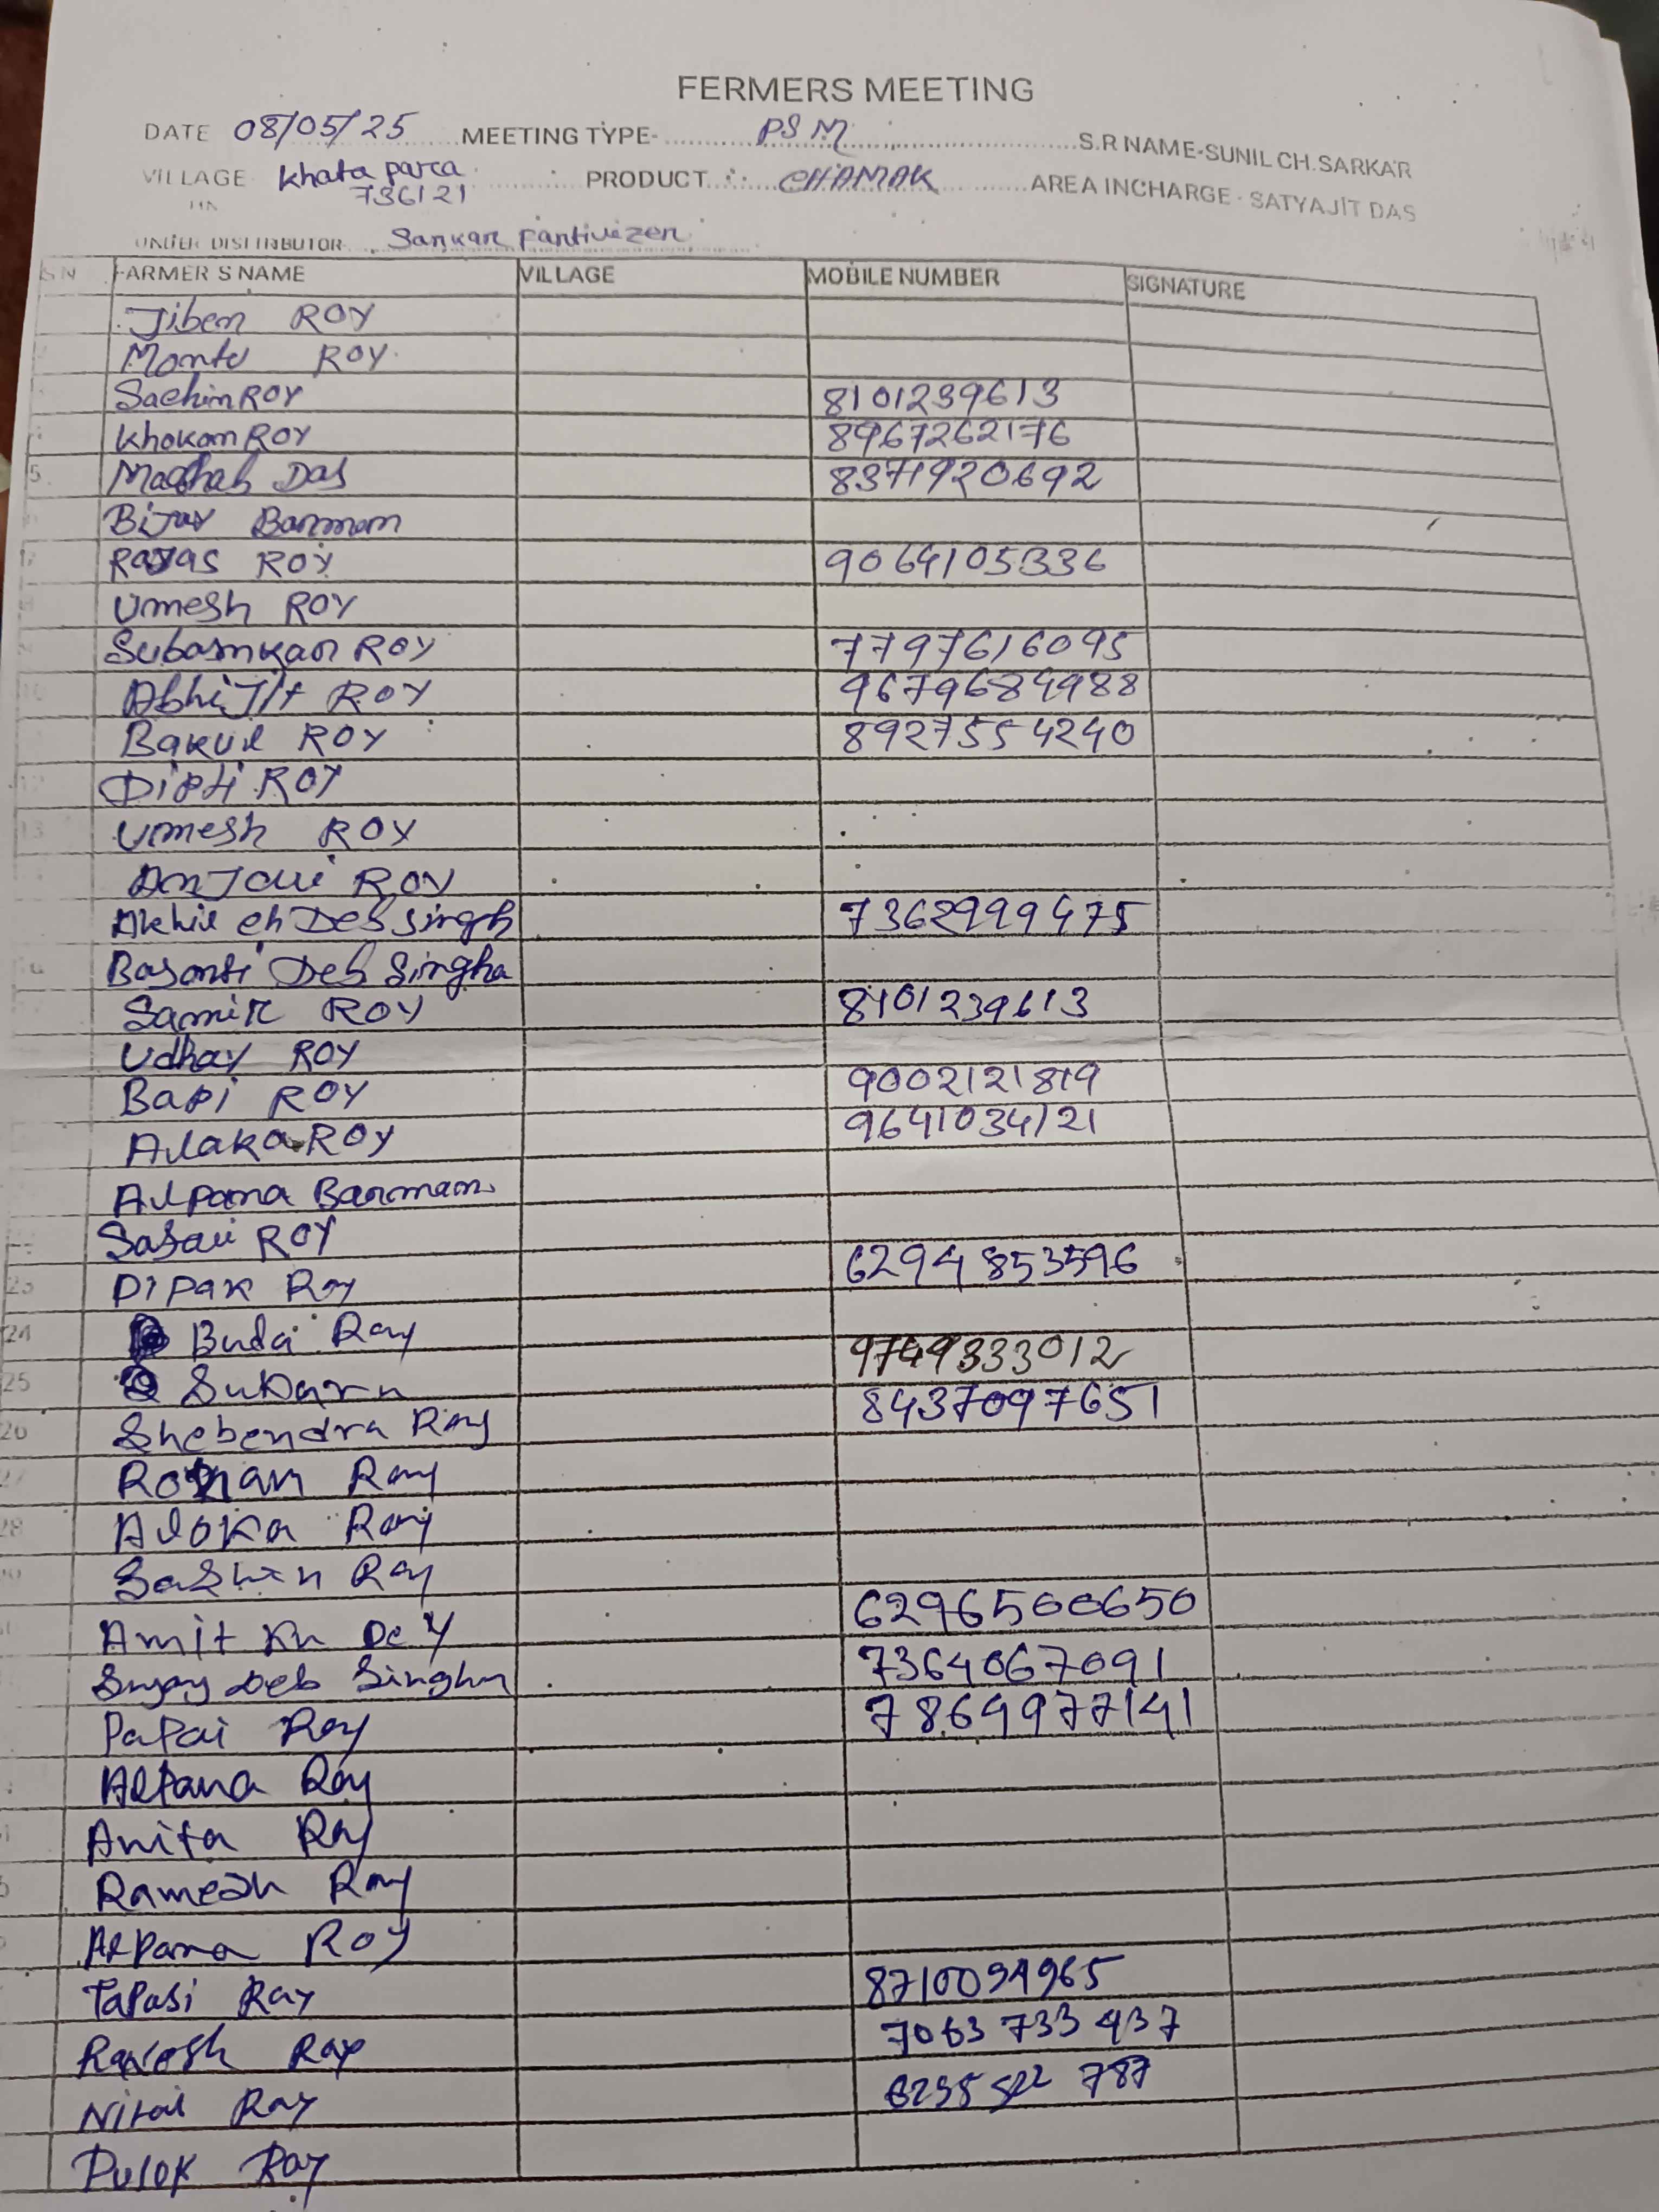 FERMERS MEETING
DATE 08/05/25 MEETING TYPE- PSM S.R NAME-SUNIL CH.SARKAR
VILLAGE Khata parca PRODUCT CHAMAK AREA INCHARGE - SATYAJIT DAS
736121
UNDER DISTRIBUTOR Sarkar
SN FARMER S NAME VILLAGE MOBILE NUMBER SIGNATURE
Jiben ROY
Montu ROY
Sachin ROY 8101239613
Khokan ROY 8967262176
5 Madhab Das 8371920692
Bijay Barman
ROY 9064105336
Umesh ROY
ROY 7797616095
10 Abhijit ROY 9679684988
Bakul ROY 8927554240
Dipti ROY
13 Umesh ROY
Anjali ROY
Akhil ch Deb Singh 7362999475
Basanti Deb Singha
Samir ROY 8101239613
Udhay ROY
Bapi ROY 9002121819
Alaka ROY 9641034121
Alpana Barman
ROY
23 Dipak Roy 6294853596
24 Buda Roy
25 9749333012
26 Shebendra Roy 8437097651
27 Roy
28 Aloka Roy
Roy
Amit Kr Dey 6296500650
Sujay Deb Singha 7364067091
Papai Roy 7864977141
Alpana Roy
Anita Roy
Ramesh Roy
Alpana Roy
Tapasi Ray 8710094965
Ray 7063 733 437
Nitai Ray 787
Pulok Ray